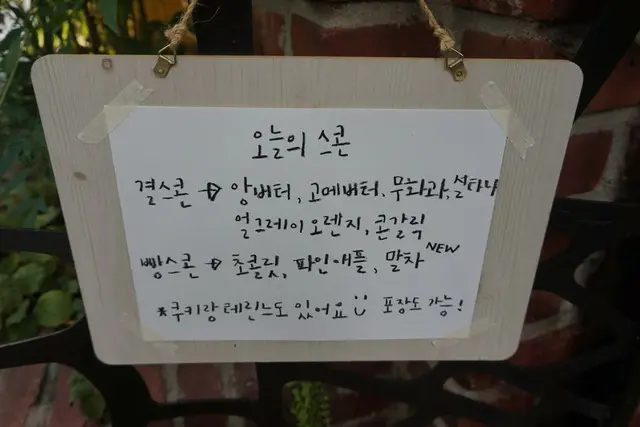 오늘의 스콘
결스콘 → 앙버터, 고메버터, 무화과, 설타나
얼그레이오렌지, 콘갈릭
빵스콘 → 초콜릿, 파인애플, 말차 NEW
*쿠키랑 테린느도 있어요 포장도 가능!